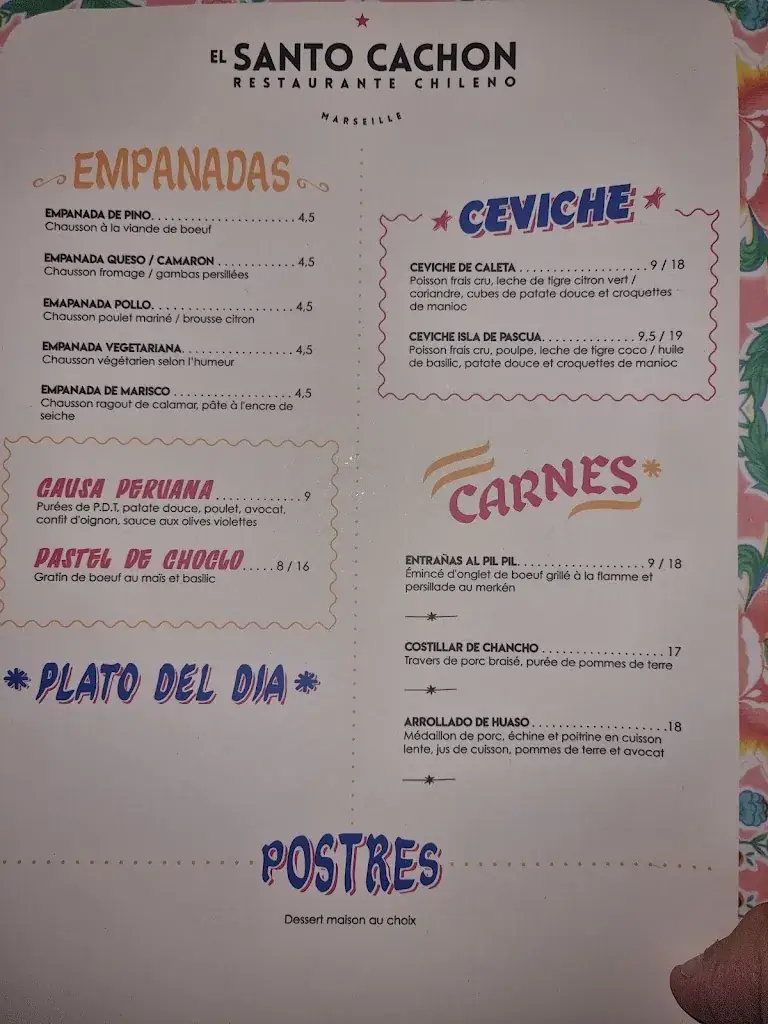 EL SANTO CACHON
RESTAURANTE CHILENO
MARSEILLE
EMPANADAS
EMPANADA DE PINO. . . . . . . . . . . . . . . . . . . . . 4,5
Chausson à la viande de boeuf
EMPANADA QUESO / CAMARON . . . . . . . . . . . . 4,5
Chausson fromage / gambas persillées
EMAPANADA POLLO. . . . . . . . . . . . . . . . . . . . . 4,5
Chausson poulet mariné / brousse citron
EMPANADA VEGETARIANA. . . . . . . . . . . . . . . . 4,5
Chausson végétarien selon l'humeur
EMPANADA DE MARISCO . . . . . . . . . . . . . . . . . 4,5
Chausson ragout de calamar, pâte à l'encre de
seiche
CAUSA PERUANA . . . . . . . . . . . . 9
Purées de P.D.T, patate douce, poulet, avocat,
confit d'oignon, sauce aux olives violettes
PASTEL DE CHOCLO. . . . . 8 / 16
Gratin de boeuf au maïs et basilic
PLATO DEL DIA
CEVICHE
CEVICHE DE CALETA . . . . . . . . . . . . . . . . . . . 9 / 18
Poisson frais cru, leche de tigre citron vert /
coriandre, cubes de patate douce et croquettes
de manioc
CEVICHE ISLA DE PASCUA. . . . . . . . . . . . . . 9,5 / 19
Poisson frais cru, poulpe, leche de tigre coco / huile
de basilic, patate douce et croquettes de manioc
CARNES
ENTRAÑAS AL PIL PIL. . . . . . . . . . . . . . . . . . . 9 / 18
Émincé d'onglet de boeuf grillé à la flamme et
persillade au merkén
COSTILLAR DE CHANCHO . . . . . . . . . . . . . . . . . . 17
Travers de porc braisé, purée de pommes de terre
ARROLLADO DE HUASO . . . . . . . . . . . . . . . . . . . .18
Médaillon de porc, échine et poitrine en cuisson
lente, jus de cuisson, pommes de terre et avocat
POSTRES
Dessert maison au choix